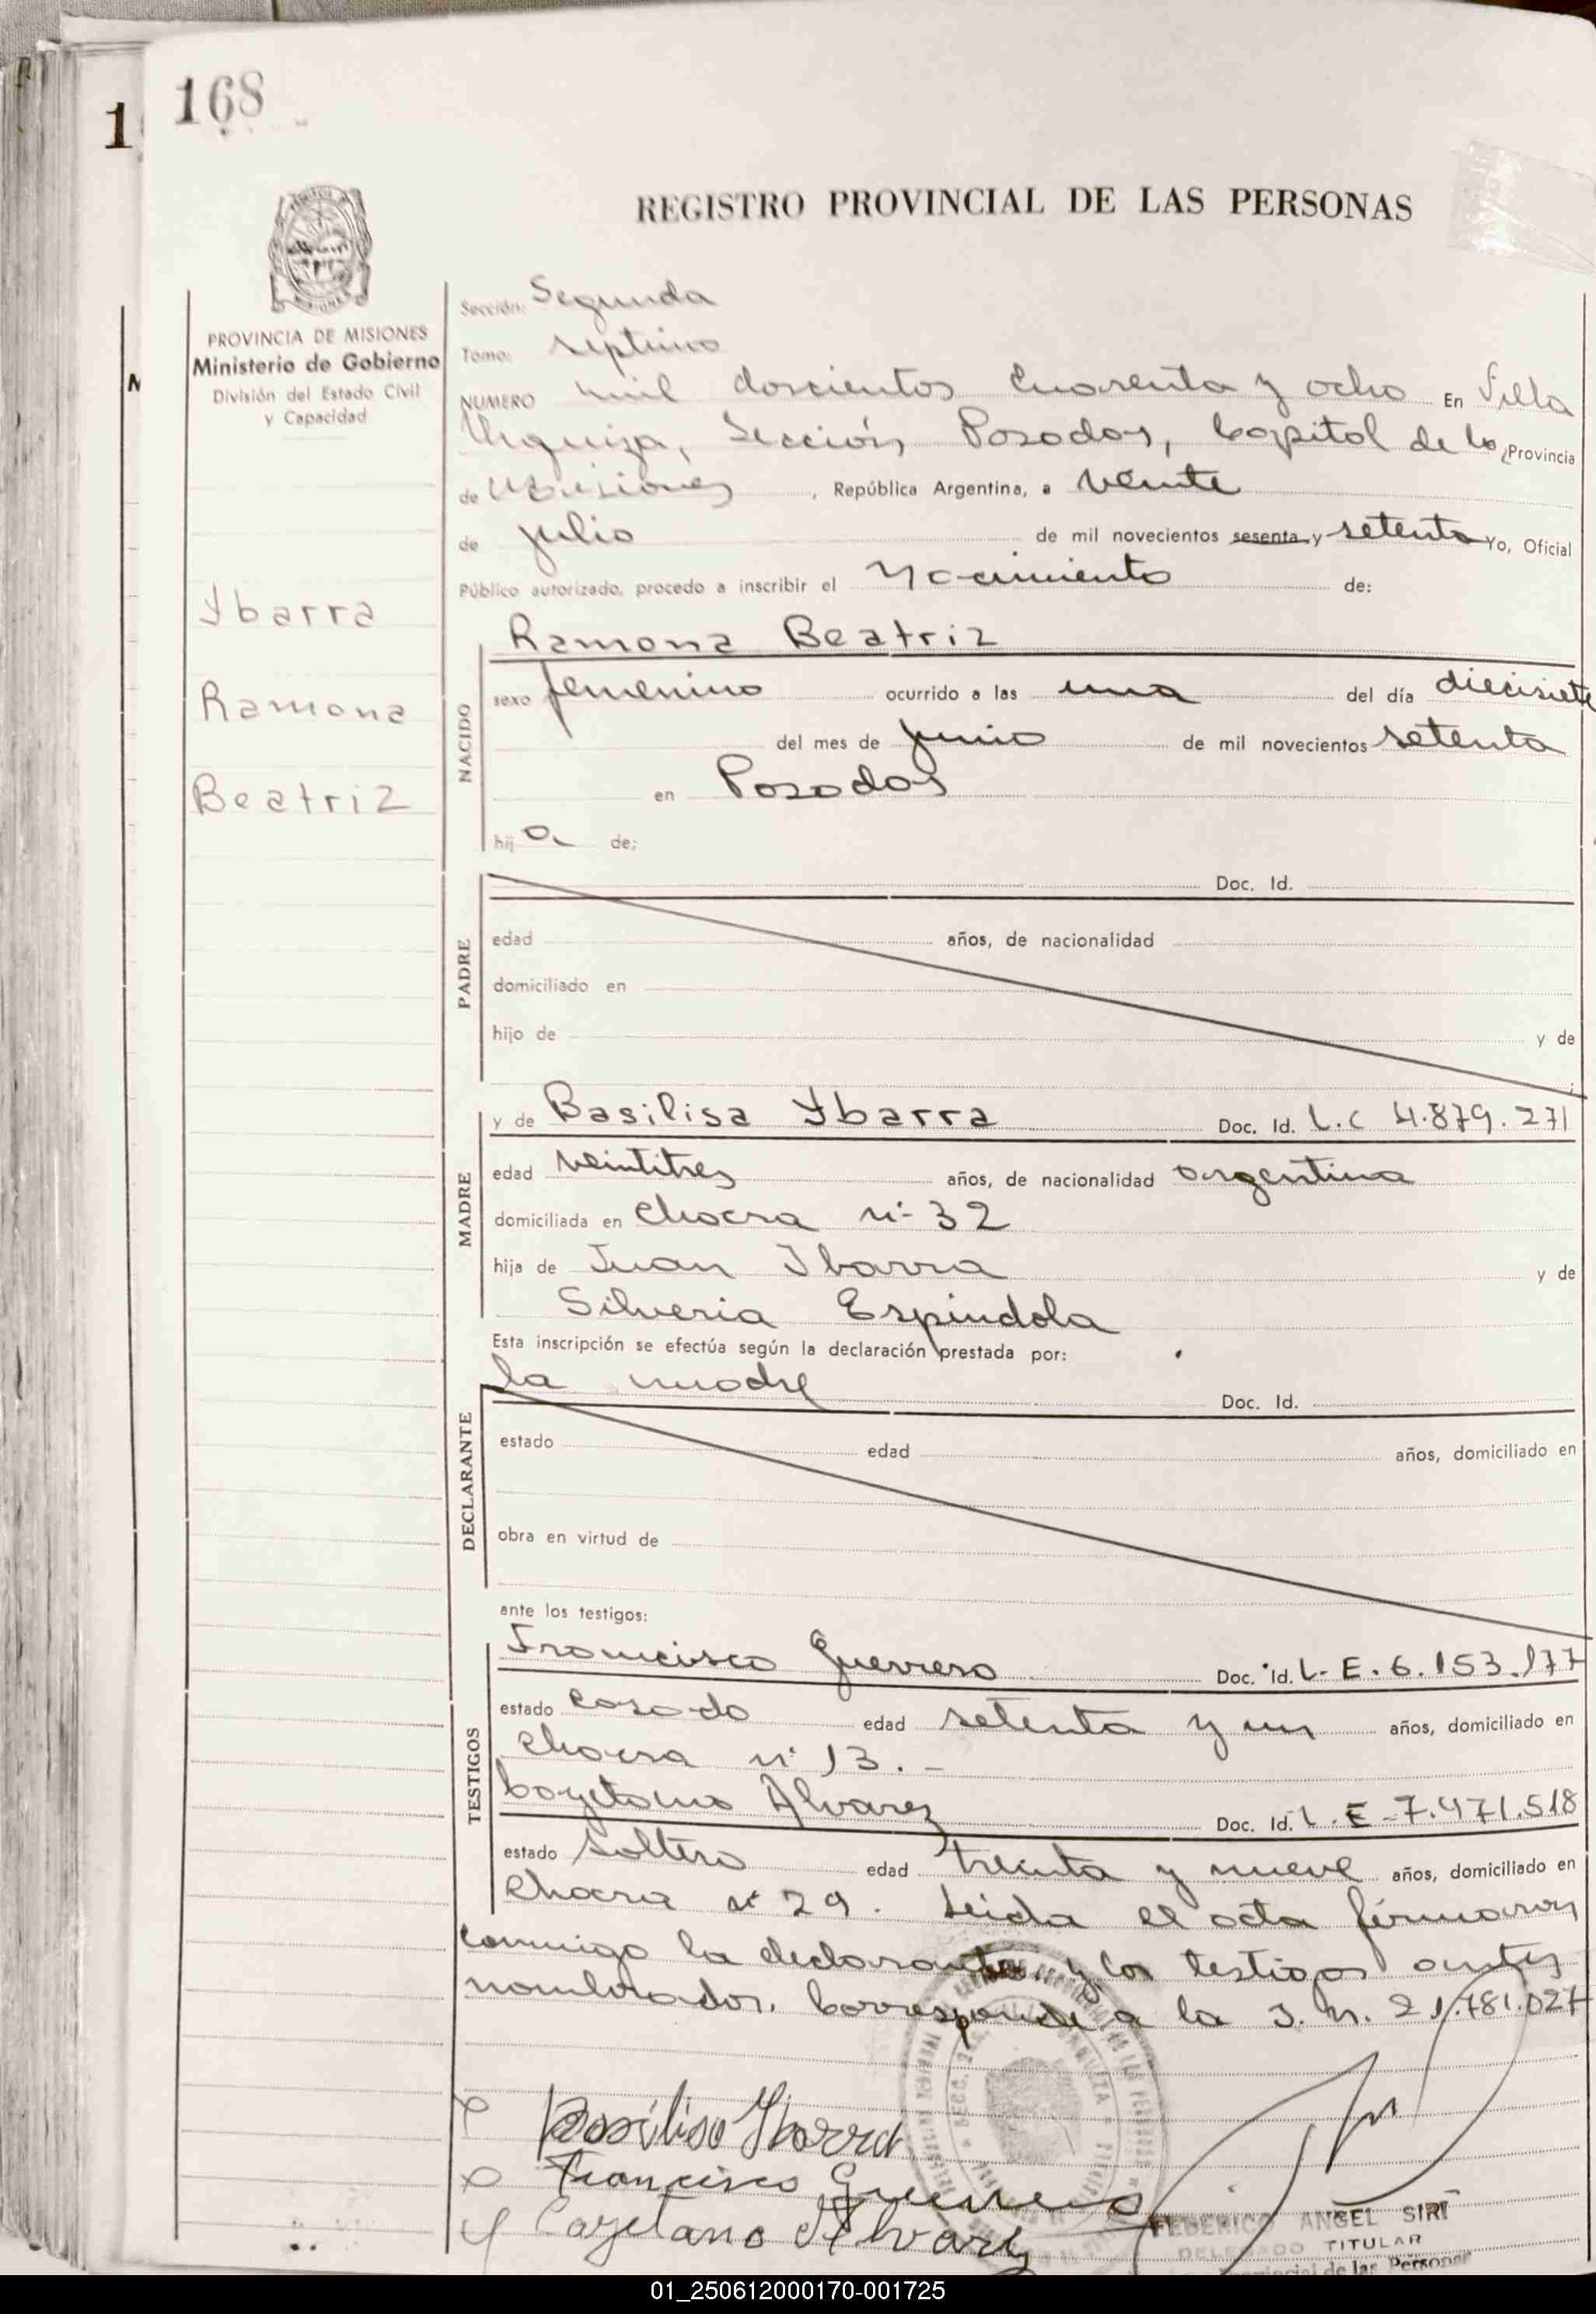 168
1
REGISTRO PROVINCIAL DE LAS PERSONAS
PROVINCIA DE MISIONES
Ministerio de Gobierno
División del Estado Civil
y Capacidad
Ybarra
Ramona
Beatriz
Sección: Segunda
Tomo: septimo
NUMERO mil doscientos cuarenta y ocho En Villa
Urquiza, Sección Posadas, Capital de la Provincia
de Misiones, República Argentina, a veinte
de julio de mil novecientos sesenta y setenta Yo, Oficial
Público autorizado, procedo a inscribir el Nacimiento de:
NACIDO
Ramona Beatriz
sexo femenino ocurrido a las una del día diecisiete
del mes de junio de mil novecientos setenta
en Posadas
hija de:
PADRE
Doc. Id.
edad años, de nacionalidad
domiciliado en
hijo de y de
MADRE
y de Basilisa Ybarra Doc. Id. L.C 4.879.271
edad veintitres años, de nacionalidad argentina
domiciliada en chacra nº 32
hija de Juan Ibarra y de
Silveria Espindola
Esta inscripción se efectúa según la declaración prestada por:
DECLARANTE
la madre Doc. Id.
estado edad años, domiciliado en
obra en virtud de
ante los testigos:
TESTIGOS
Francisco Guerrero Doc. Id. L.E. 6.153.177
estado casado edad setenta y un años, domiciliado en
chacra nº 13.-
Cayetano Alvarez Doc. Id. L.E-7.471.518
estado soltero edad treinta y nueve años, domiciliado en
chacra nº 29. Leida el acta firmaron
conmigo la declarante y los testigos antes
nombrados. Corresponde a la I.N. 21.781.027
Basilisa Ybarra
Francisco Guerrero
Cayetano Alvarez
FEDERICO ANGEL SIRI
DELEGADO TITULAR
de las Personas
01_250612000170-001725